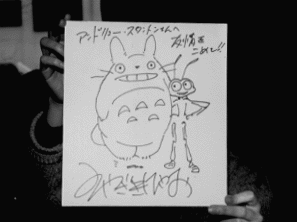 アンドリュー・スタントンさんへ
友情を
こめて!!
みやざきはやお